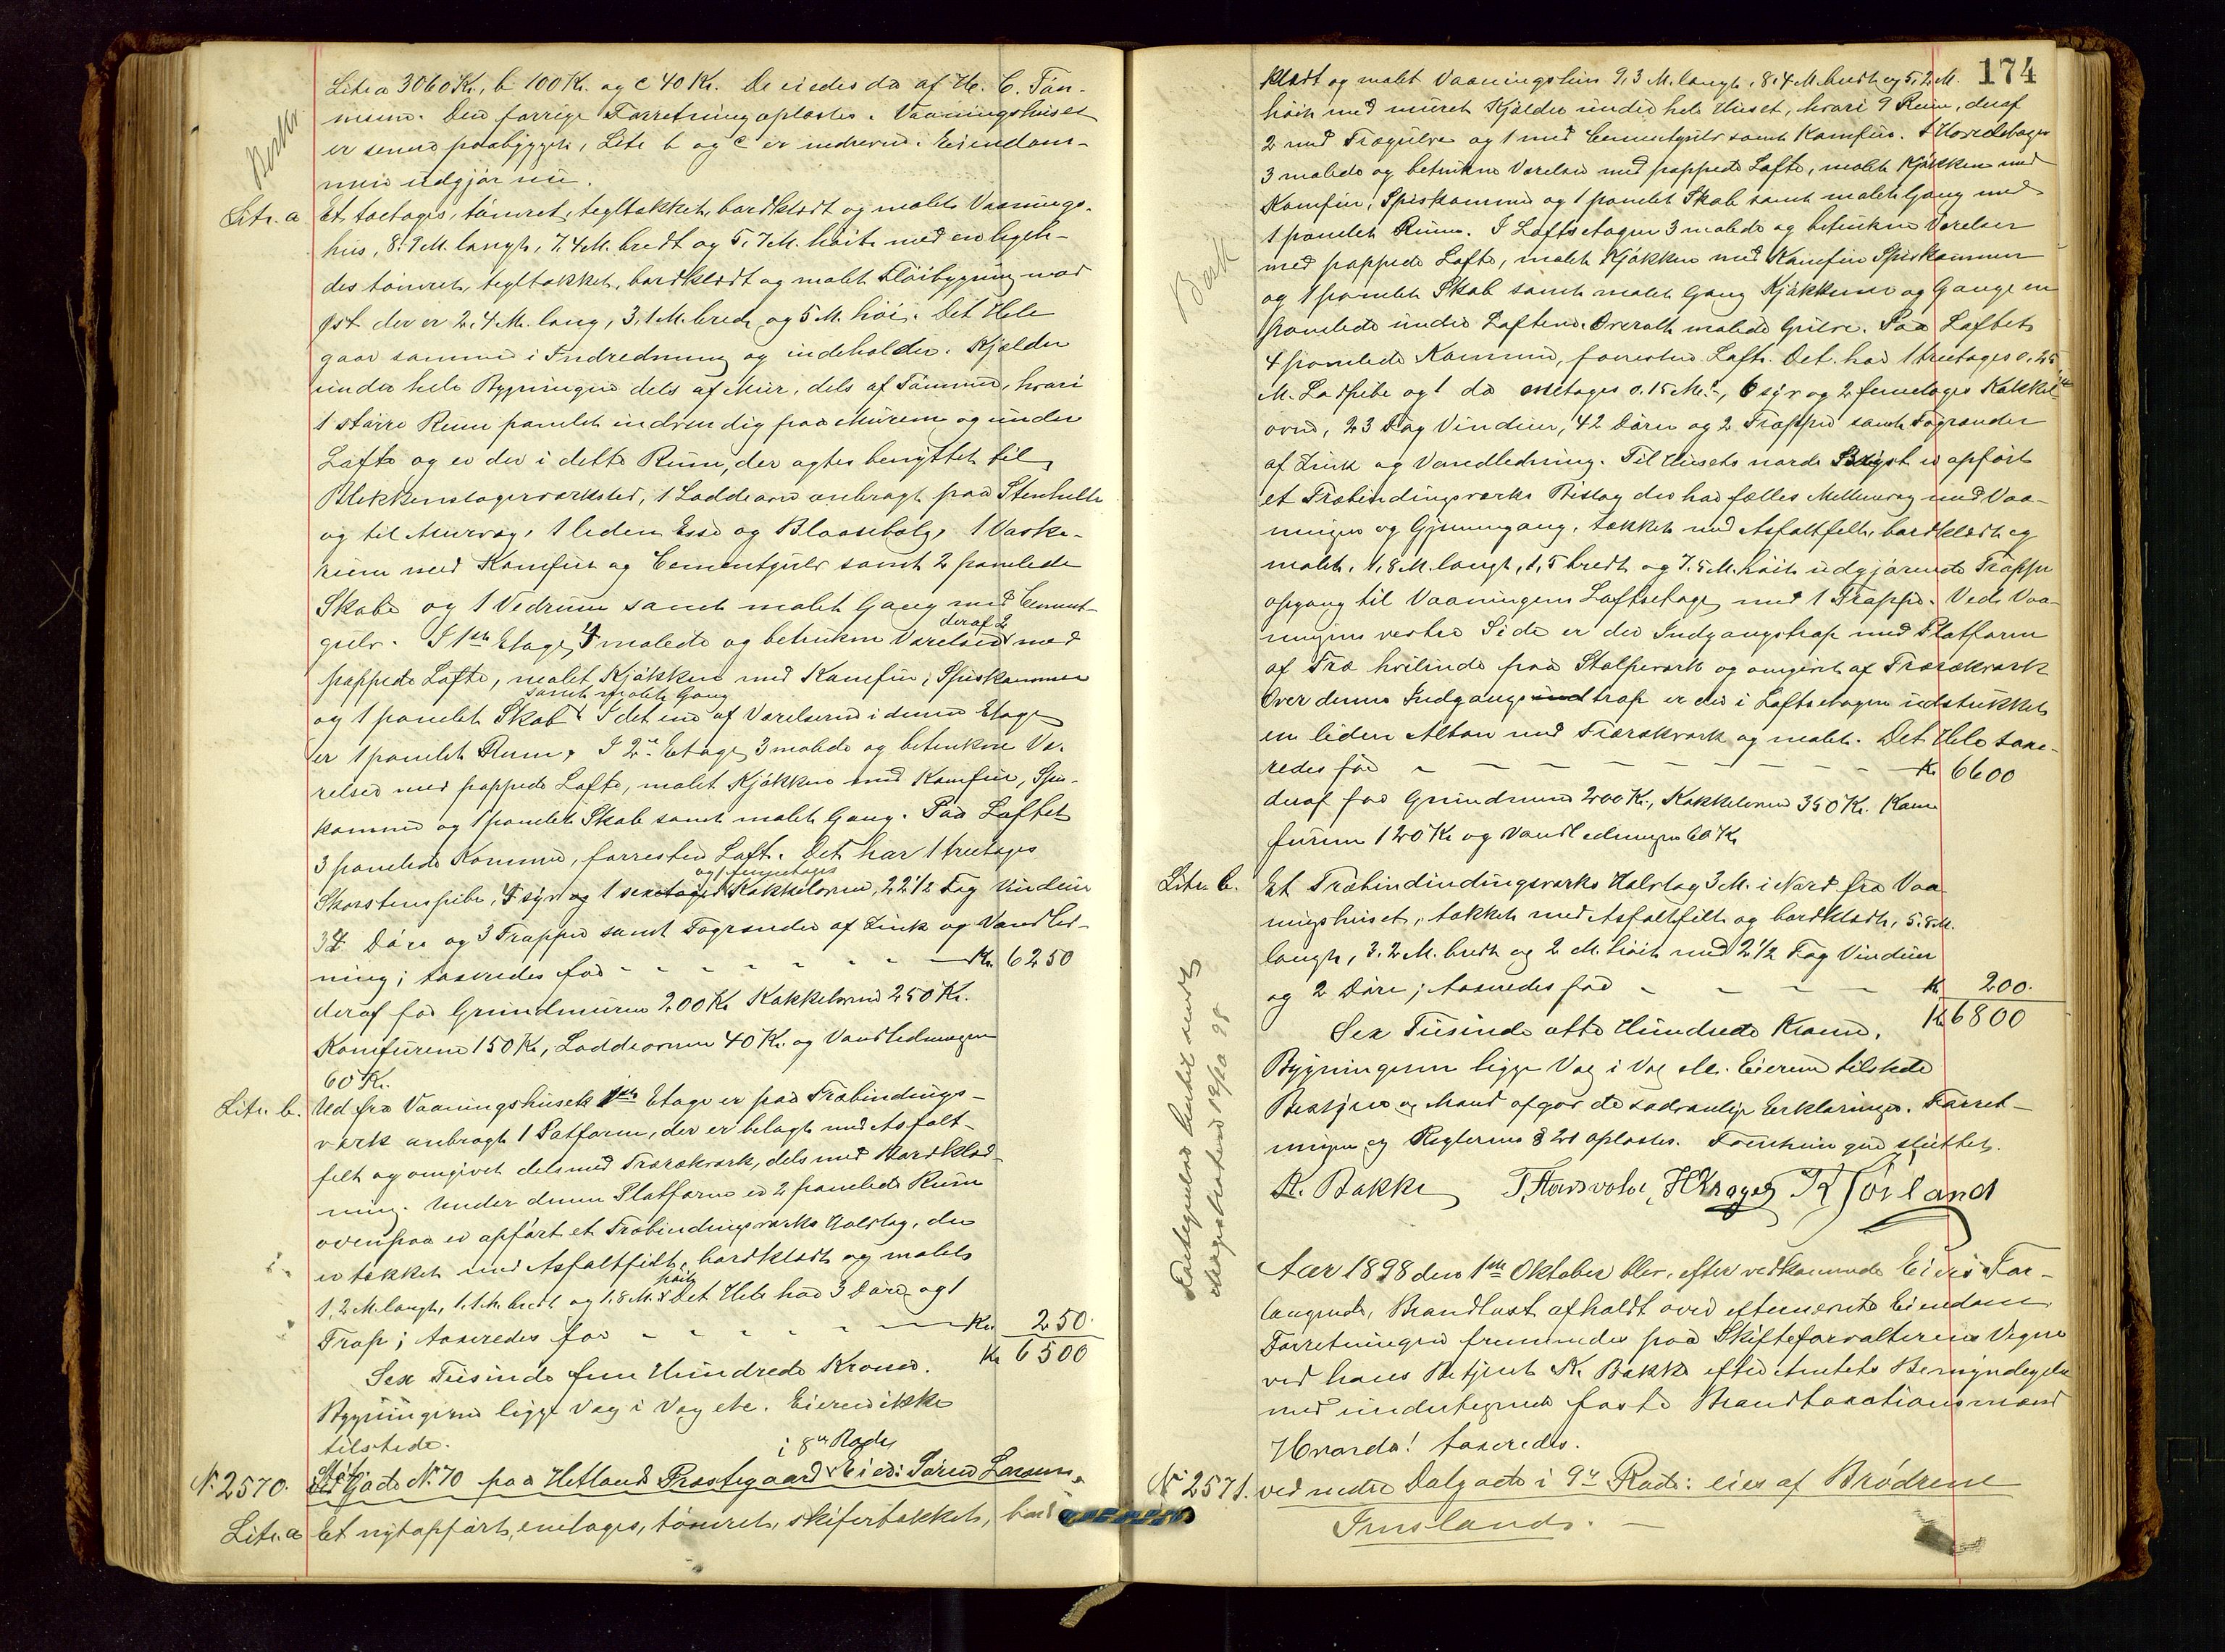 Litra 3060 Kr., b 100 Kr. og c 40 Kr. De eiedes da af H. C. Tön-
nesen. Den forrige Forretning oplæstes. Vaaningshuset
er senere paabygget, Litr b og c er nedrevne. Eiendom-
men udgjör nu.
Litr. a Et toetages, tömret, tegltækket, bordklædt og malet Vaanings-
hus, 8.9 M. langt, 7.4 M. bredt og 5.7 M. höit med en ligele-
des tömret, tegltækket, bordklædt og malet Flöibygning mod
Öst der er 2.4 M. lang, 3.1 M. bred og 5 M. höi. Det Hele
gaar sammen i Indredning og indeholder. Kjelder
under hele Bygningen dels af Mur, dels af Tömmer, hvori
1 större Rum panelet indvendig paa Murene og under
Loftet og er der i dette Rum, der agtes benyttet til
Blikkenslagerværksted, 1 Loddeovn anbragt paa Stenhelle
og til Murvæg, 1 liden Esse og Blaasebælg, 1 Vaske-
rum med Komfur og Cementgulv samt 2 panelede
Skabe og 1 Vedrum samt malet Gang med Cement-
gulv. I 1ste Etage 4 malede og betrukne Værelser deraf 2 med
pappede Lofte, malet Kjökken med Komfur, Spiskammer
og 1 panelet Skab samt malet Gang. I det ene af Værelserne i denne Etage
er 1 panelet Rum. I 2den Etage 3 malede og betrukne Væ-
relser med pappede Lofte, malet Kjökken med Komfur, Spis-
kammer og 1 panelet Skab samt malet Gang. Paa Loftet
3 panelede Kammer, forresten Loft. Det har 1 treetages
Skorstenspibe, 4 syv og 1 sexetages og 1 femetages Kakkelovne, 22 1/2 Fag Vinduer
34 Döre og 3 Trapper samt Tagrender af Zink og Vandled-
ning; taxeredes for - - - - - - - Kr. 6250
deraf for Grundmuren 200 Kr Kakkelovne 250 Kr.
Komfurene 150 Kr, Loddeovnen 40 Kr. og Vandledningen
60 Kr.
Litr. b. Ud fra Vaaningshusets 1ste Etage er paa Træbindings-
værk anbragt 1 Platform, der er belagt med Asfalt-
felt og omgivet dels med Trærækværk, dels med Bordklæd-
ning. Under denne Platform er 2 panelede Rum
ovenpaa er opfört et Træbindingsværks Halvtag, der
er tækket med Asfaltfilt, bordklædt og malet
1.2 M. langt, 1.1 M. bredt og 1.8 M. höit. Det Hele har 3 Döre og 1
Trap; taxeredes for - - - - - - Kr. 250.
Kr 6500
Sex Tusinde fem Hundrede Kroner.
Bygningerne ligge Væg i Væg etc. Eieren ikke
tilstede.
N. 2570. Sted Gade N. 70 paa Hetlands Præstegaard i 8de Rode Eier: Sören Larsen.
Litr. a Et nytopfört, enetages, tömret, skifertækket, bord
Besk.
174
klædt og malet Vaaningshus 9,3 M. langt, 8,4 M. bredt og 5,2 M.
höit med muret Kjelder under hele Huset, hvori 9 Rum, deraf
2 med Trægulve og 1 med Cementgulv samt Komfur. I Hovedetagen
3 malede og betrukne Værelser med pappede Lofte, malet Kjökken med
Komfur, Spiskammer og 1 panelet Skab samt malet Gang med
1 panelet Rum. I Loftsetagen 3 malede og betrukne Værelser
med pappede Lofte, malet Kjökken med Komfur Spiskammer
og 1 panelet Skab samt malet Gang Kjökkener og Gange en
panelede under Loftene. Overalt malede Gulve. Paa Loftet
4 panelede Kammer, forresten Loft. Det har 1 treetages 0.25
M. Ladpibe og 1 do enetages 0.15 M., 6 syv og 2 femetages Kakkel-
ovne, 23 Fag Vinduer, 42 Dören og 2 Trapper samt Tagrender
af Zink og Vandledning. Til Husets nordre er opfört
et Træbindingsværks Bislag der har fælles Mellemvæg med Vaa-
ningen og Gjennemgang, tækket med Asfaltfelt, bordklædt og
malet, 1,8 M. langt, 1,5 bredt og 7.5 M. höit udgjörende Trappe
opgang til Vaaningens Loftsetage med 1 Trappe. Ved Vaa-
ningens vestre Side er der Indgangstrap med Platform
af Træ hvilende paa Stolpeværk og omgivet af Trærækværk
Over denne Indgangstrap er der i Loftsetagen udstukket
en liden Altan med Trærækværk og malet. Det Hele taxe-
redes for - - - - - - - - - Kr 6600
deraf for Grundmuren 200 Kr., Kakkelovne 350 Kr. Kom
furene 120 Kr og Vandledningen 60 Kr
Litr. b. Et Træbindindingsværks Halvtag 3 M. i Nord fra Vaa
ningshuset, tækket med Asfaltfilt og bordklædt, 5.8 M.
langt, 3.2 M. bredt og 2 M. höit med 2 1/2 Fag Vinduer
og 2 Döre; taxeredes for - - - - Kr 200.
Sex Tusinde otte Hundrede Kroner. Kr 6800
Bygningerne ligge Væg i Væg etc. Eieren tilstede
Bestyrer og Mænd afgav de sædvanlige Erklæringer. Forret-
ningen og Reglernes § 21 oplæstes. Forretningen sluttet.
K. Bakke T. Hersvoler, H Krager R Sörland
Aar 1898 den 1ste Oktober blev, efter vedkommende Eiers For-
langende, Brandtaxt afholdt over efternævnte Eiendom.
Forretningen fremmedes paa Skifteforvalterens Vegne
ved hans Betjent K. Bakke efter Amtets Bemyndigelse
med undertegnede faste Brandtaxationsmænd
Hvorda! taxeredes.
N. 2571. ved nedre Dalgade i 9de Rode: eies af Brödrene
Imslands. —
Besk